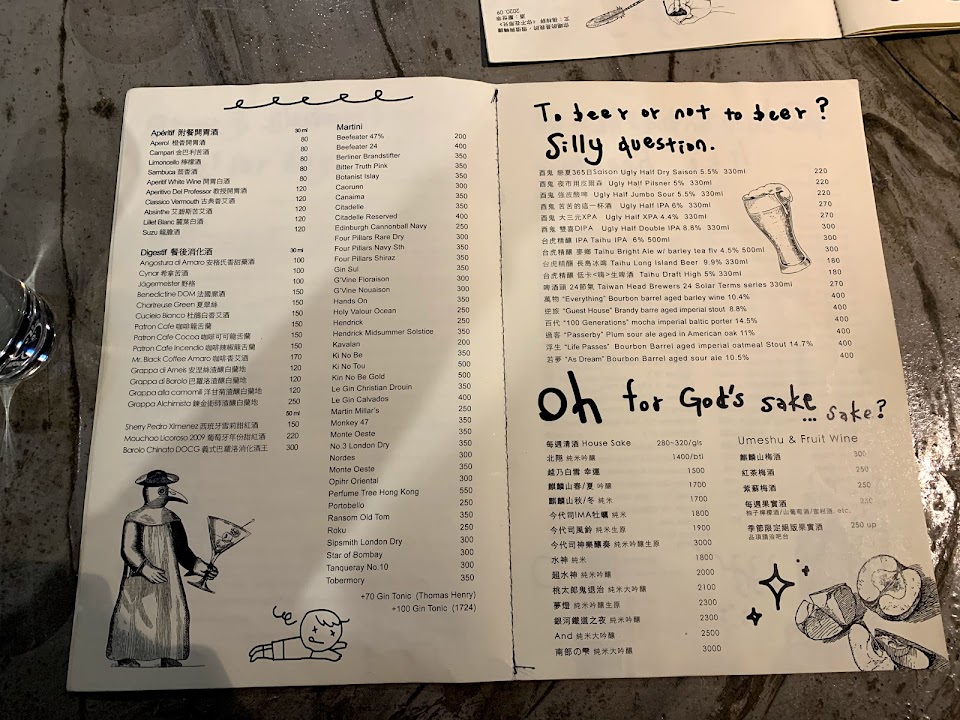 Apéritif 附餐開胃酒 30 ml
Aperol 橙香開胃酒 80
Campari 金巴利苦酒 80
Limoncello 檸檬酒 80
Sambuca 茴香酒 80
Aperitif White Wine 開胃白酒 80
Aperitivo Del Professor 教授開胃酒 120
Classico Vermouth 古典香艾酒 120
Absinthe 艾碧斯苦艾酒 120
Lillet Blanc 麗葉白酒 120
Suzu 龍膽酒 120
Digestif 餐後消化酒 30 ml
Angostura di Amaro 安格氏香甜藥酒 100
Cynar 希拿苦酒 100
Jägermeister 野格 100
Benedictine DOM 法國廊酒 150
Chartreuse Green 夏翠絲 150
Cucielo Bianco 杜鵑白香艾酒 150
Patron Cafe 咖啡龍舌蘭 150
Patron Cafe Cocoa 咖啡可可龍舌蘭 150
Patron Cafe Incendio 咖啡辣椒龍舌蘭 150
Mr. Black Coffee Amaro 咖啡香艾酒 170
Grappa di Arneis 安涅絲渣釀白蘭地 120
Grappa di Barolo 巴羅洛渣釀白蘭地 120
Grappa alla camomil 洋甘菊渣釀白蘭地 120
Grappa Alchimista 鍊金術師渣釀白蘭地 250
50 ml
Sherry Pedro Ximenez 西班牙雪莉甜紅酒 150
Mouchao Licoroso 2009 葡萄牙年份甜紅酒 220
Barolo Chinato DOCG 義式巴羅洛消化酒王 300
Martini
Beefeater 47% 200
Beefeater 24 400
Berliner Brandstifter 350
Bitter Truth Pink 350
Botanist Islay 350
Caorunn 300
Canaima 350
Citadelle 350
Citadelle Reserved 400
Edinburgh Cannonball Navy 250
Four Pillars Rare Dry 300
Four Pillars Navy Sth 350
Four Pillars Shiraz 350
Gin Sul 350
G'Vine Floraison 300
G'Vine Nouaison 300
Hands On 350
Holy Valour Ocean 250
Hendrick 250
Hendrick Midsummer Solstice 350
Kavalan 200
Ki No Be 350
Ki No Tou 500
Kin No Be Gold 500
Le Gin Christian Drouin 350
Le Gin Calvados 400
Martin Millar's 250
Monkey 47 350
Monte Oeste 350
No.3 London Dry 350
Nordes 300
Monte Oeste 350
Opihr Oriental 300
Perfume Tree Hong Kong 550
Portobello 250
Ransom Old Tom 350
Roku 250
Sipsmith London Dry 300
Star of Bombay 300
Tanqueray No.10 300
Tobermory 350
+70 Gin Tonic (Thomas Henry)
+100 Gin Tonic (1724)
To beer or not to beer?
Silly question.
酉鬼 樂夏365日Saison Ugly Half Dry Saison 5.5% 330ml 220
酉鬼 夜市用皮爾森 Ugly Half Pilsner 5% 330ml 220
酉鬼 強波酸啤 Ugly Half Jumbo Sour 5.5% 330ml 220
酉鬼 苦苦的這一杯酒 Ugly Half IPA 6% 330ml 270
酉鬼 大三元XPA Ugly Half XPA 4.4% 330ml 270
酉鬼 雙喜DIPA Ugly Half Double IPA 8.8% 330ml 300
台虎精釀 IPA Taihu IPA 6% 500ml 300
台虎精釀 麥鄉 Taihu Bright Ale w/ barley tea flv 4.5% 500ml 300
台虎精釀 長島冰啤 Taihu Long Island Beer 9.9% 330ml 180
台虎精釀 低卡<嗨>生啤酒 Taihu Draft High 5% 330ml 180
啤酒頭 24節氣 Taiwan Head Brewers 24 Solar Terms series 330ml 270
萬物 "Everything" Bourbon barrel aged barley wine 10.4% 400
逆旅 "Guest House" Brandy barre aged imperial stout 8.8% 400
百代 "100 Generations" mocha imperial baltic porter 14.5% 400
過客 "Passerby" Plum sour ale aged in American oak 11% 400
浮生 "Life Passes" Bourbon Barrel aged imperial oatmeal Stout 14.7% 400
若夢 "As Dream" Bourbon Barrel aged sour ale 10.5% 400
Oh for God's sake ... sake?
每週清酒 House Sake 280~320/gls
北翔 純米吟釀 1400/btl
越乃白雪 幸運 1500
麒麟山春/夏 吟釀 1700
麒麟山秋/冬 純米 1700
今代司IMA牡蠣 純米 1800
今代司風鈴 純米生原 1900
今代司神樂釀奏 純米吟釀生原 3000
水神 純米 1800
超水神 純米吟釀 2000
桃太郎鬼退治 純米大吟釀 2100
夢燈 純米吟釀生原 2300
銀河鐵道之夜 純米吟釀 2300
And 純米大吟釀 2500
南部の雫 純米大吟釀 3000
Umeshu & Fruit Wine
麒麟山梅酒 300
紅茶梅酒 250
紫蘇梅酒 250
每週果實酒 250
柚子檸檬酒/山葡萄酒/蜜柑酒, etc.
季節限定絕版果實酒 250 up
品項請洽吧台
2020. 09